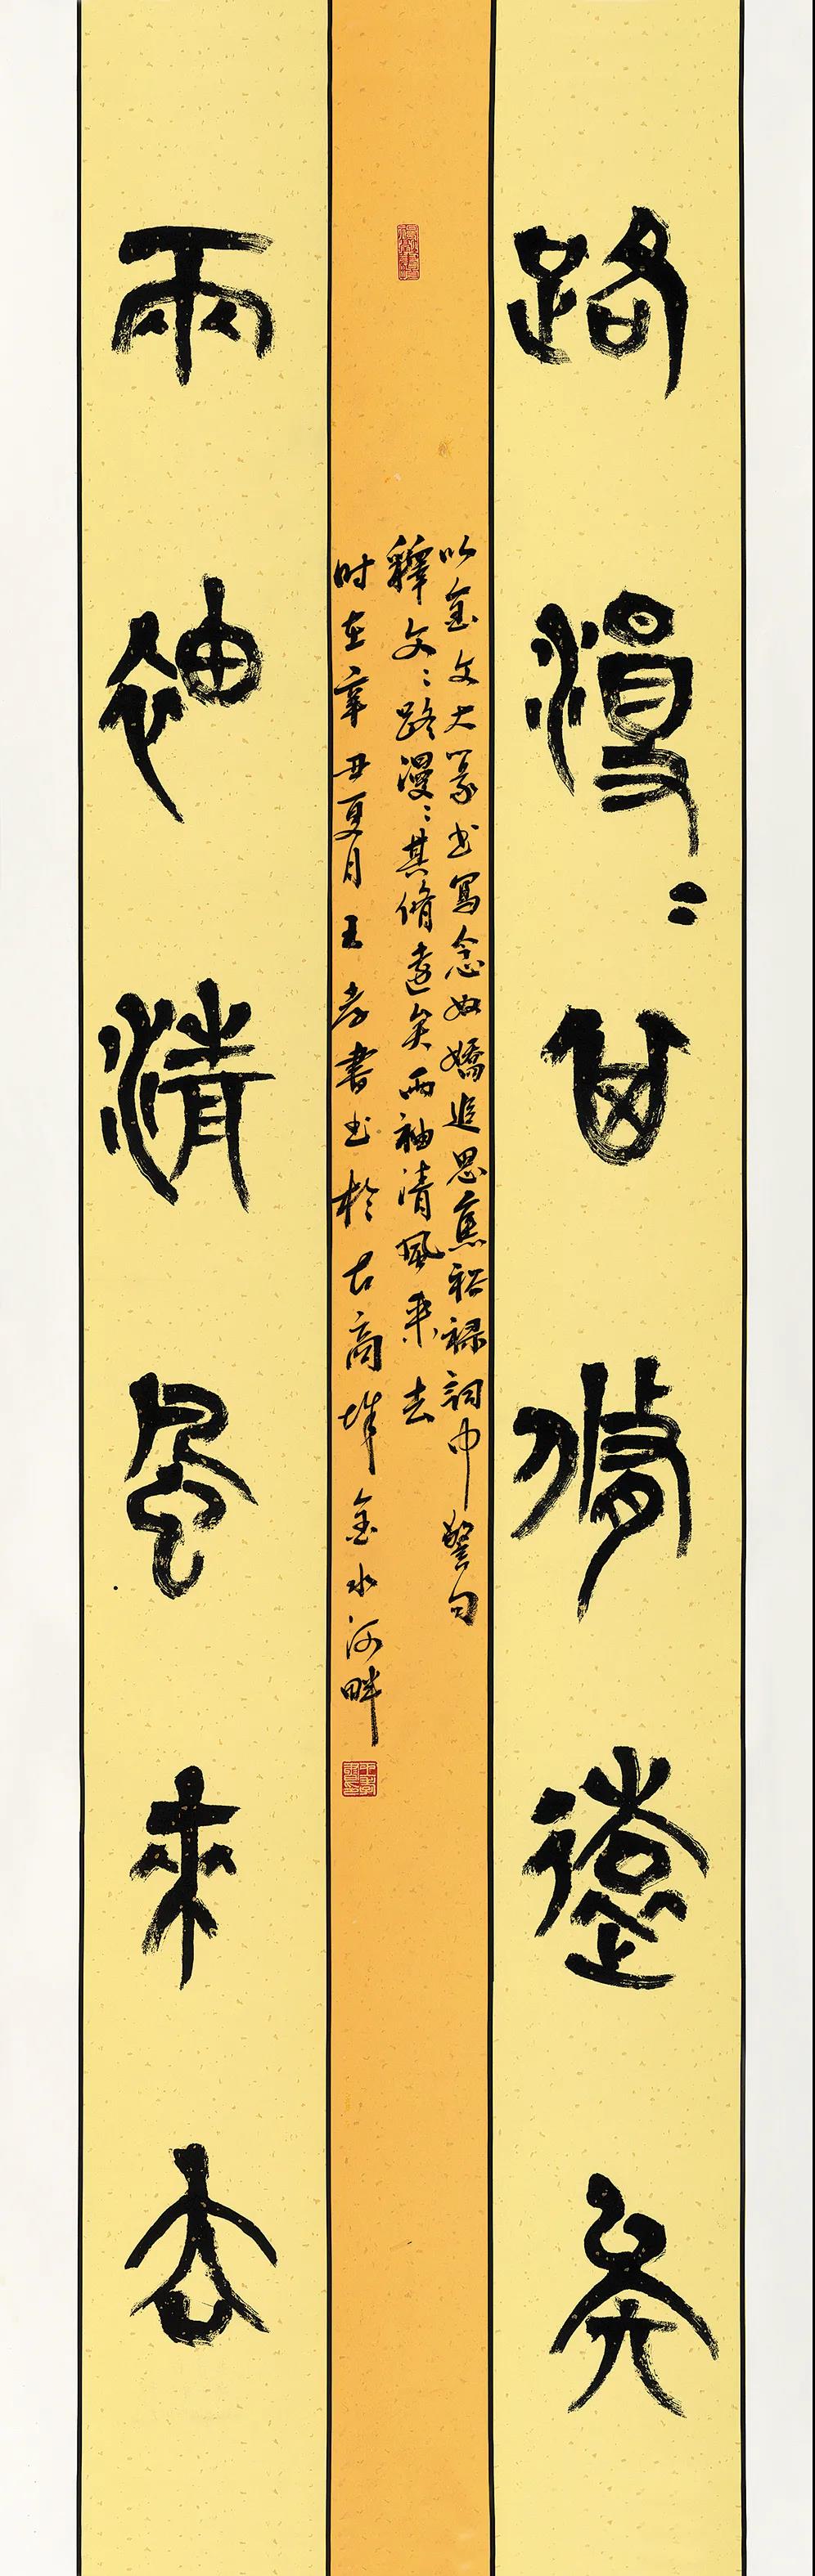 路漫〻其脩遠矣
以金文大篆书寫念奴嬌追思焦裕禄詞中警句
釋文〻路漫〻其脩遠矣两袖清風来去
时在辛丑夏月王孝書书於古商城金水河畔
兩袖清風來去